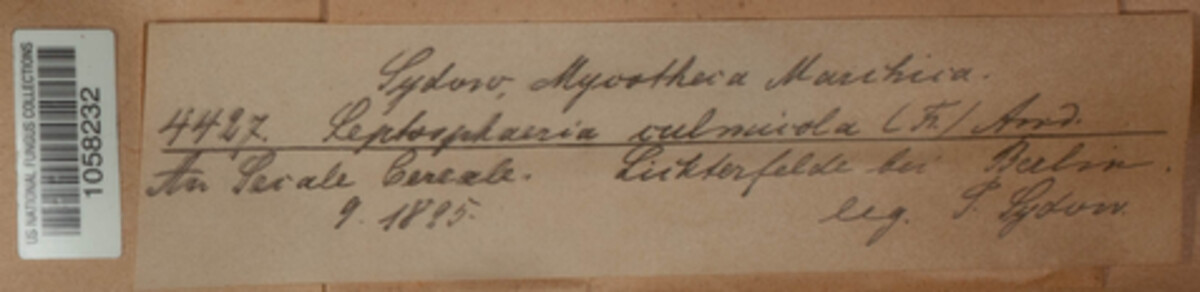 US NATIONAL FUNGUS COLLECTIONS
1058232
Sydow, Mycotheca Marchica.
4427. Leptosphaeria culmicola (Fr.) Awd.
An Secale Cereale. Lichterfelde bei Berlin.
9. 1895. leg. P. Sydow.